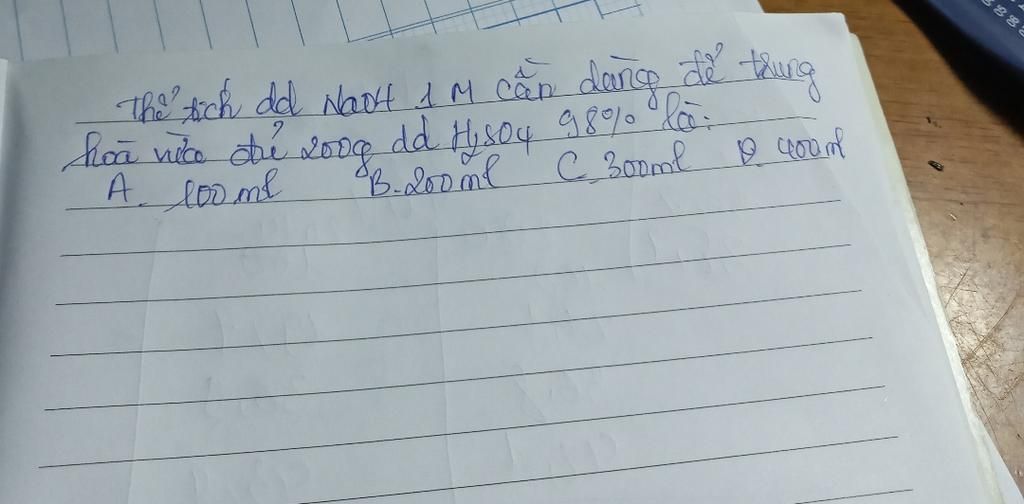 Thể tích dd NaOH 1M cần dùng để trung
hoà vừa đủ 200g dd H2SO4 98% là:
A. 100ml B. 200ml C. 300ml D. 400ml